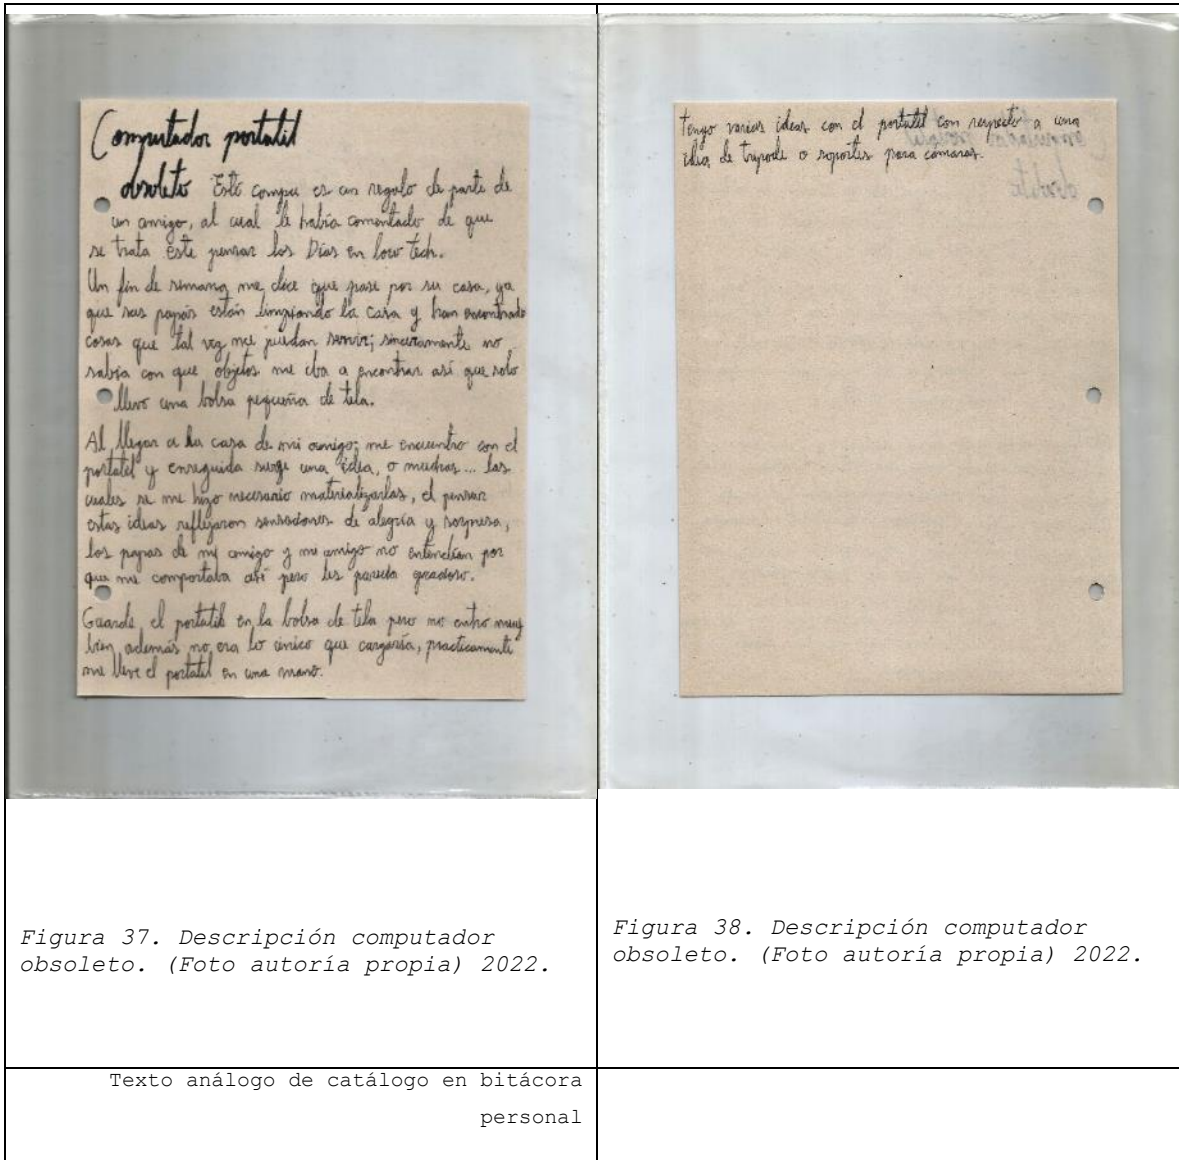 Computador portatil
obsoleto Este compu es un regalo de parte de
un amigo, al cual le había comentado de que
se trata este pensar los Días en low tech.
Un fin de semana me dice que pase por su casa, ya
que sus papás están limpiando la casa y han encontrado
cosas que tal vez me puedan servir; sinceramente no
sabía con que objetos me iba a encontrar así que solo
llevo una bolsa pequeña de tela.
Al llegar a la casa de mi amigo; me encuentro con el
portatil y enseguida surge una idea, o muchas... las
cuales se me hizo necesario materializarlas, el pensar
estas ideas reflejaron sensaciones de alegría y sorpresa,
los papas de mi amigo y mi amigo no entendían por
que me comportaba así pero les parecía gracioso.
Guarde el portatil en la bolsa de tela pero no entro muy
bien además no era lo único que cargaría, practicamente
me lleve el portatil en una mano.
Tengo varias ideas con el portatil con respecto a una
idea de tripode o soportes para camaras.
Figura 37. Descripción computador
obsoleto. (Foto autoría propia) 2022.
Figura 38. Descripción computador
obsoleto. (Foto autoría propia) 2022.
Texto análogo de catálogo en bitácora
personal